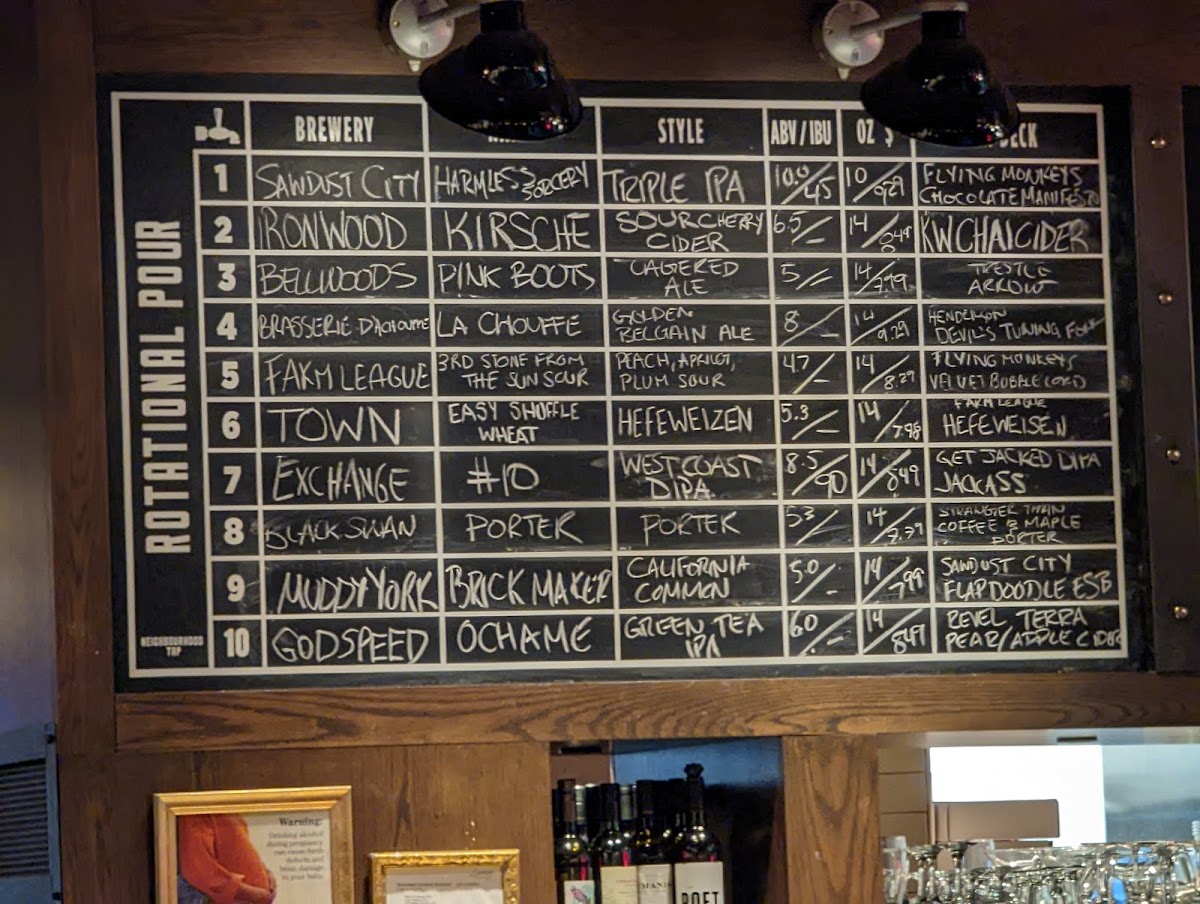 BREWERY STYLE ABV / IBU OZ $ DECK
ROTATIONAL POUR
NEIGHBOURHOOD
TAP
1 SAWDUST CITY HARMLESS SORCERY TRIPLE IPA 10.0/45 10/9.29 FLYING MONKEYS
CHOCOLATE MANIFESTO
2 IRONWOOD KIRSCHE SOUR CHERRY
CIDER 6.5/- 14/8.49 KW CHAI CIDER
3 BELLWOODS PINK BOOTS LAGERED
ALE 5/- 14/7.99 TRESTLE
ARROW
4 BRASSERIE D'ACHOUFFE LA CHOUFFE GOLDEN
BELGAIN ALE 8/- 14/9.29 HENDERSON
DEVIL'S TUNING FORK
5 FARM LEAGUE 3RD STONE FROM
THE SUN SOUR PEACH, APRICOT,
PLUM SOUR 4.7/- 14/8.29 FLYING MONKEYS
VELVET BUBBLE LORD
6 TOWN EASY SHUFFLE
WHEAT HEFEWEIZEN 5.3/- 14/7.98 FARM LEAGUE
HEFEWEISEN
7 EXCHANGE #10 WEST COAST
DIPA 8.5/90 14/8.49 GET JACKED DIPA
JACKASS
8 BLACK SWAN PORTER PORTER 5.3/- 14/ STRANGER THAN
COFFEE & MAPLE
PORTER
9 MUDDY YORK BRICK MAKER CALIFORNIA
COMMON 5.0/- 14/7.99 SAWDUST CITY
FLAPDOODLE ESB
10 GODSPEED OCHAME GREEN TEA
IPA 6.0/- 14/8.49 REVEL TERRA
PEAR/APPLE CIDER
Warning:
Drinking alcohol
during pregnancy
can cause birth
defects and
brain damage
to your baby.
POET